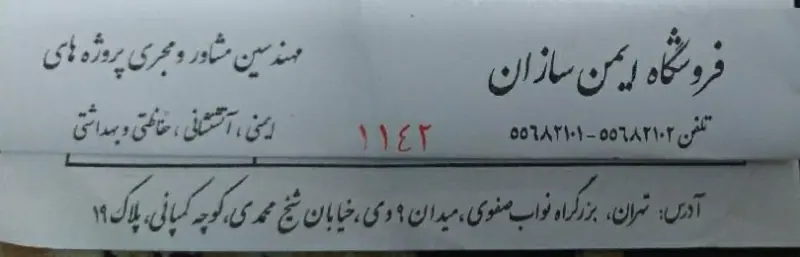 فروشگاه ایمن سازان
مهندسین مشاور و مجری پروژه های
تلفن ۵۵۶۸۲۱۰۲ - ۵۵۶۸۲۱۰۱
۱۱٤۲
ایمنی ، آتشنشانی ، حفاظتی و بهداشتی
آدرس: تهران، بزرگراه نواب صفوی، میدان ۹ دی، خیابان شیخ محمدی، کوچه کمپانی، پلاک ۱۹